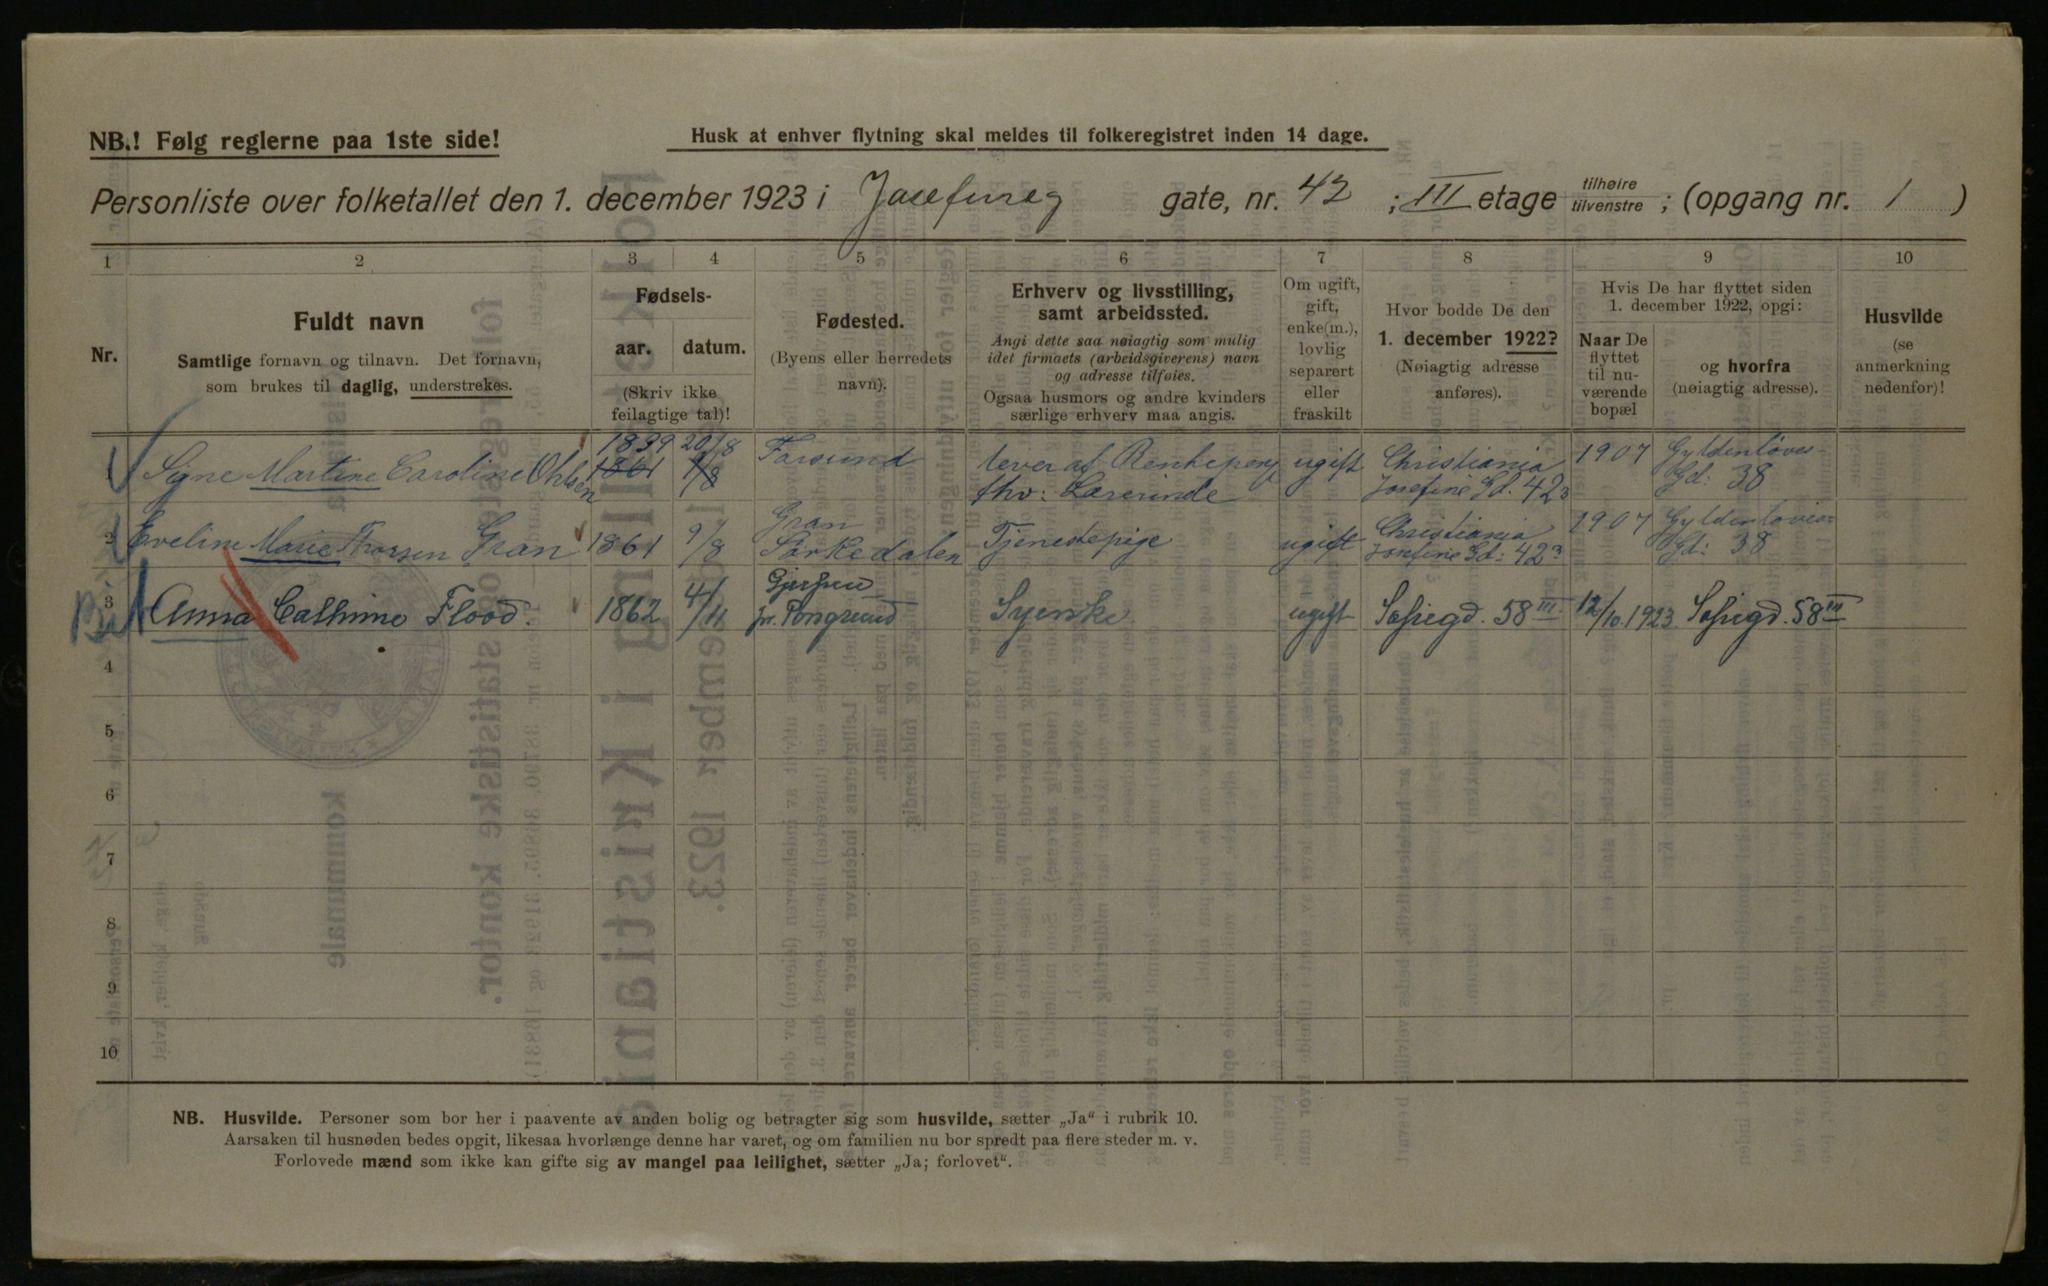 NB.! Følg reglerne paa 1ste side!
Husk at enhver flytning skal meldes til folkeregistret inden 14 dage.
Personliste over folketallet den 1. december 1923 i Josefineg gate, nr. 42 ; III etage tilhøire tilvenstre ; (opgang nr. 1 )
1 2 3 4 5 6 7 8 9 10
Nr.
Fuldt navn
Samtlige fornavn og tilnavn. Det fornavn,
som brukes til daglig, understrekes.
Fødsels-
aar. datum.
(Skriv ikke
feilagtige tal)!
Fødested.
(Byens eller herredets
navn).
Erhverv og livsstilling,
samt arbeidssted.
Angi dette saa nøiagtig som mulig
idet firmaets (arbeidsgiverens) navn
og adresse tilføies.
Ogsaa husmors og andre kvinders
særlige erhverv maa angis.
Om ugift,
gift,
enke(m.),
lovlig
separert
eller
fraskilt
Hvor bodde De den
1. december 1922?
(Nøiagtig adresse
anføres).
Hvis De har flyttet siden
1. december 1922, opgi:
Naar De
flyttet
til nu-
værende
bopæl
og hvorfra
(nøiagtig adresse).
Husvilde
(se
anmerkning
nedenfor)!
Signe Martine Caroline Ohlsen 1839 20/8 Farsund lever af
1861 9/8
thv: Lærerinde ugift Christiania Josefine Gd. 42 3 1907 Gyldenløves Gd: 38
2 Eveline Marie Thorsen Gran 1861 9/8 Gran Sørkedalen Tjenestepige ugift Christiania Josefine Gd: 42 3 1907 Gyldenløves Gd: 38
3 Anna Cathrine Flood. 1862 4/11 Gjerpen pr. Porsgrund Syerske ugift Sofiegd. 58 III 12/10 1923 Sofiegd. 58 III
4
5
6
7
8
9
10
NB. Husvilde. Personer som bor her i paavente av anden bolig og betragter sig som husvilde, sætter „Ja“ i rubrik 10.
Aarsaken til husnøden bedes opgit, likesaa hvorlænge denne har varet, og om familien nu bor spredt paa flere steder m. v.
Forlovede mænd som ikke kan gifte sig av mangel paa leilighet, sætter „Ja; forlovet“.